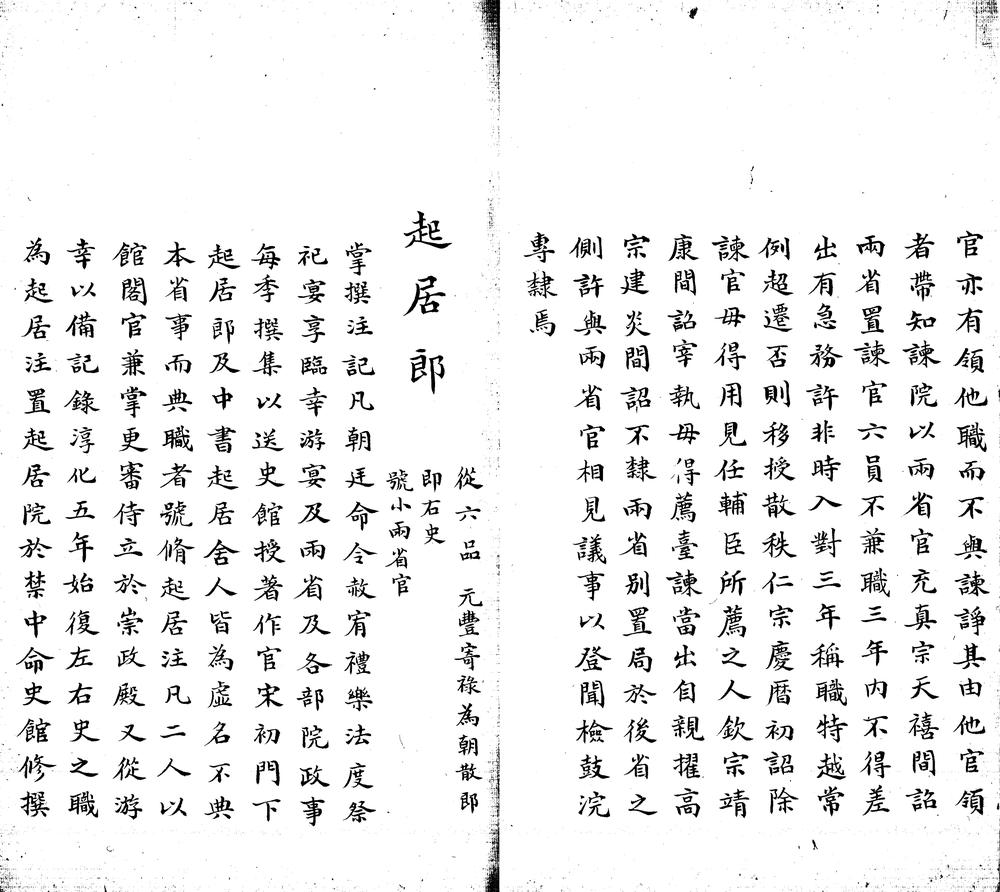 官亦有領他職而不與諫諍其由他官領
者帶知諫院以兩省官充真宗天禧間詔
兩省置諫官六員不兼職三年內不得差
出有急務許非時入對三年稱職特越常
例超遷否則移授散秩仁宗慶曆初詔除
諫官毋得用見任輔臣所薦之人欽宗靖
康間詔宰執毋得薦臺諫當出自親擢高
宗建炎間詔不隸兩省別置局於後省之
側許與兩省官相見議事以登聞檢鼓浣
專隸焉
起居郎
從六品 元豐寄祿為朝散郎
即右史
號小兩省官
掌撰注記凡朝廷命令赦宥禮樂法度祭
祀宴享臨幸游宴及兩省及各部院政事
每季撰集以送史館授著作官宋初門下
起居郎及中書起居舍人皆為虛名不典
本省事而典職者號脩起居注凡二人以
館閣官兼掌更審侍立於崇政殿又從游
幸以備記錄淳化五年始復左右史之職
為起居注置起居院於禁中命史館修撰